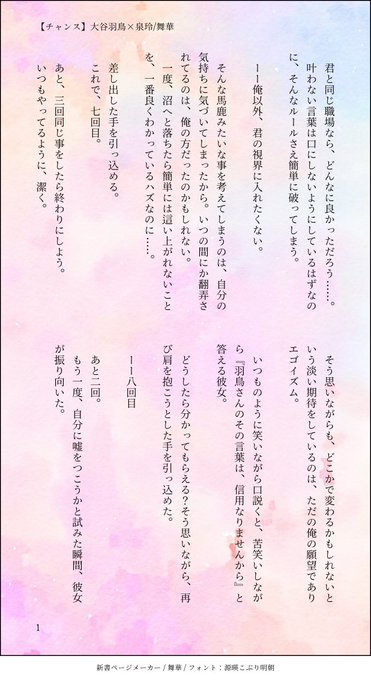 【チャンス】大谷羽鳥×泉玲/舞華
君と同じ職場なら、どんなに良かっただろう……。
叶わない言葉は口にしないようにしているはずなの
に、そんなルールさえ簡単に破ってしまう。
ーー俺以外、君の視界に入れたくない。
そんな馬鹿みたいな事を考えてしまうのは、自分の
気持ちに気づいてしまったから。いつの間にか翻弄さ
れてるのは、俺の方だったのかもしれない。
一度、沼へと落ちたら簡単には這い上がれないこと
を、一番良くわかっているハズなのに……。
差し出した手を引っ込める。
これで、七回目。
あと、三回同じ事をしたら終わりにしよう。
いつもやってるように、潔く。
そう思いながらも、どこかで変わるかもしれないと
いう淡い期待をしているのは、ただの俺の願望であり
エゴイズム。
いつものように笑いながら口説くと、苦笑いしなが
ら『羽鳥さんのその言葉は、信用なりませんから』と
答える彼女。
どうしたら分かってもらえる？そう思いながら、再
び肩を抱こうとした手を引っ込めた。
ーー八回目
あと二回。
もう一度、自分に嘘をつこうかと試みた瞬間、彼女
が振り向いた。
1
新書ページメーカー / 舞華 / フォント：源暎こぶり明朝